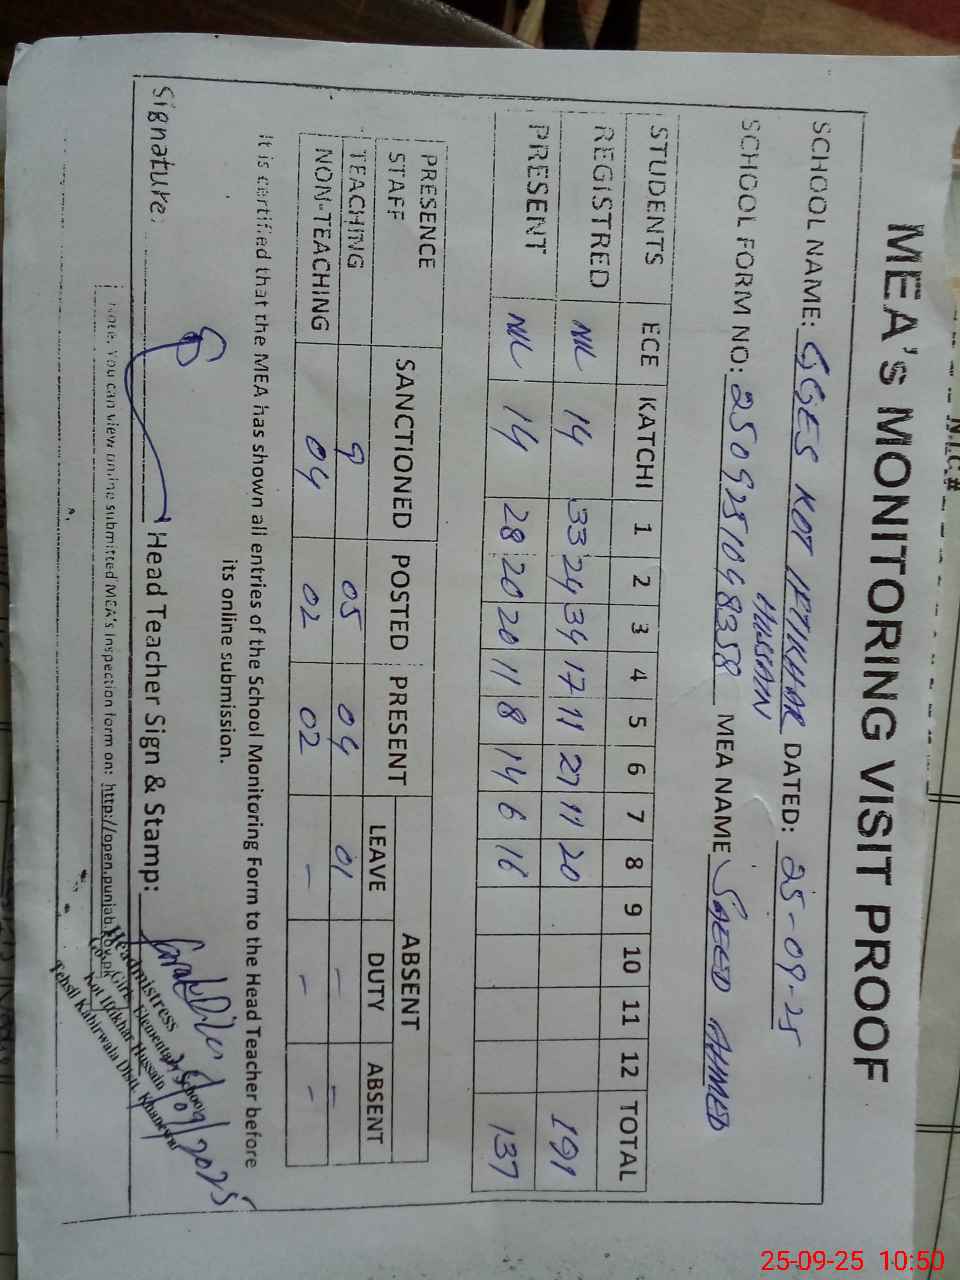 N.I.C#
MEA's MONITORING VISIT PROOF
SCHOOL NAME: GGES KOT IFTIKHAR HUSSAIN DATED: 25-09-25
SCHOOL FORM NO: 2509251048358 MEA NAME SAEED AHMED
STUDENTS ECE KATCHI 1 2 3 4 5 6 7 8 9 10 11 12 TOTAL
REGISTRED NIL 14 33 24 34 17 11 27 11 20 191
PRESENT NIL 14 28 20 20 11 8 14 6 16 137
PRESENCE STAFF SANCTIONED POSTED PRESENT ABSENT
LEAVE DUTY ABSENT
TEACHING 9 05 04 01 - -
NON-TEACHING 04 02 02 - - -
It is certified that the MEA has shown all entries of the School Monitoring Form to the Head Teacher before
its online submission.
Signature: Head Teacher Sign & Stamp:
25/09/2025
Headmistress
Girls Elementary School
Kot Iftikhar Hussain
Tehsil Kabirwala Distt. Khanewal
Note: You can view online submitted MEA's Inspection form on: http://open.punjab.gov.pk
25-09-25 10:50